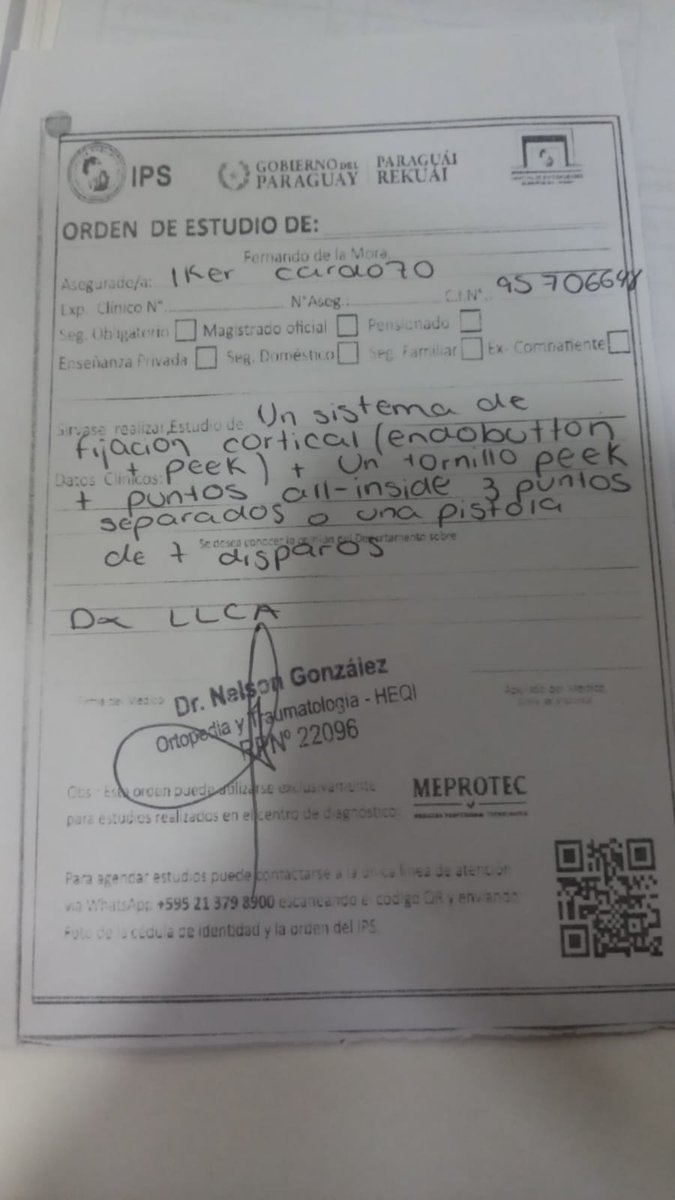 IPS
GOBIERNO DEL PARAGUAY
PARAGUÁI REKUÁI
ORDEN DE ESTUDIO DE:
Fernando de la Mora,
Asegurado/a: Iker cardozo
Exp. Clínico N°. N°Aseg.: C.I.N°.
Seg. Obligatorio Magistrado oficial Pensionado
Enseñanza Privada Seg. Doméstico Seg. Familiar Ex- Combatiente
Sírvase realizar Estudio de Un sistema de
fijación cortical (endobutton
+ peek) + Un tornillo peek
Datos Clínicos:
+ puntos all-inside 3 puntos
separados o una pistola
Se desea conocer la opinión del Departamento sobre
de 7 disparos
Dx LLCA
Firma del Médico
Dr. Nelson González
Ortopedia y Traumatologia - HEQI
Nº 22096
Obs.: Esta orden puede utilizarse exclusivamente
para estudios realizados en el centro de diagnóstico:
MEPROTEC
Para agendar estudios puede contactarse a la única línea de atención
via WhatsApp +595 21 379 8900 escaneando el codigo QR y enviando:
Foto de la cédula de identidad y la orden del IPS.